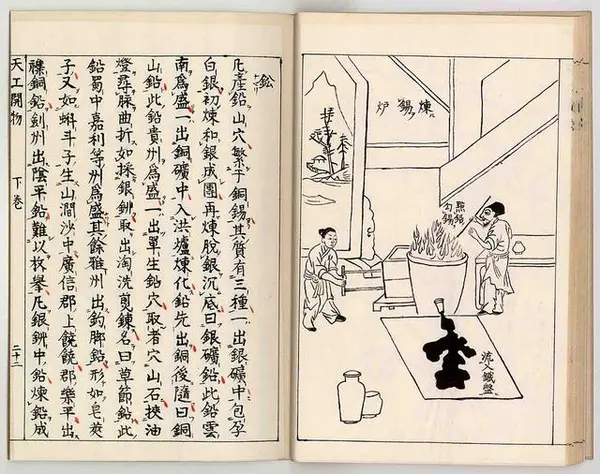 煉錫炉
點鉛勾錫
流入鐵盤
鉛
凡產鉛山穴繁于銅錫其質有三種一出銀礦中包孕
白銀初煉和銀成團再煉脫銀沉底曰銀礦鉛此鉛雲
南爲盛一出銅礦中入洪爐煉化鉛先出銅後隨曰銅
山鉛此鉛貴州爲盛一出單生鉛穴取者穴山石挾油
燈尋脉曲折如採銀鉚取出淘洗煎鍊名曰草節鉛此
鉛蜀中嘉利等州爲盛其餘雅州出釣脚鉛形如皂莢
子又如蝌斗子生山澗沙中廣信郡上饒饒郡樂平出
襍銅鉛劍州出陰平鉛難以枚舉凡銀鉚中鉛煉鉛成
天工開物 下卷 二十二